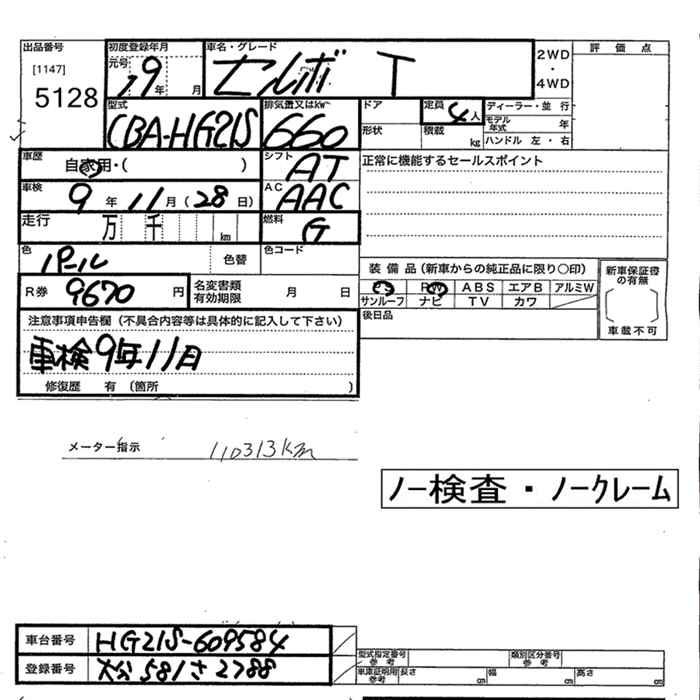 出品番号 初度登録年月 車名・グレード 2WD・4WD 評価点
[1147] 元号 19年 月 セルボ T
5128
型式 排気量又はkw ドア 定員 4人 ディーラー・並行
CBA-HG21S 660 形状 積載 kg モデル年式 年
ハンドル 左・右
車歴 自家用・( ) シフト AT 正常に機能するセールスポイント
車検 9年 11月(28日) AC AAC
走行 万 千 km 燃料 G
色 パール 色替 色コード
装備品(新車からの純正品に限り〇印) 新車保証書の有無
R券 9670円 名変書類有効期限 月 日
ABS エアB アルミW
サンルーフ ナビ TV カワ
後日品 車載不可
注意事項申告欄(不具合内容等は具体的に記入して下さい)
車検9年11月
修復歴 有(箇所 )
メーター指示 110313km
ノー検査・ノークレーム
車台番号 HG21S-609584
型式指定番号 参考 類別区分番号 参考
登録番号 大分581さ2788
車庫証明用 参考 長さ cm 幅 cm 高さ cm